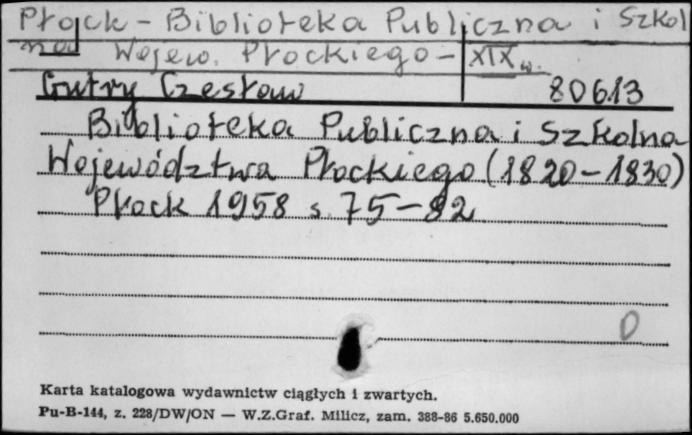 Płock - Biblioteka Publiczna i Szkol
na Wojew. Płockiego - XIX w.
Gutry Czesław 80613
Biblioteka Publiczna i Szkolna
Województwa Płockiego (1820-1830)
Płock 1958 s. 75-82
0
Karta katalogowa wydawnictw ciągłych i zwartych.
Pu-B-144, z. 228/DW/ON — W.Z.Graf. Milicz, zam. 388-86 5.650.000